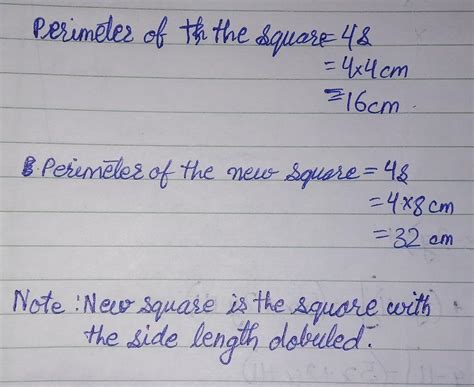 Perimeter of the the square = 4s
= 4×4 cm
= 16cm.
Perimeter of the new square = 4s
= 4×8 cm
= 32 cm
Note : New square is the square with
the side length dobuled.